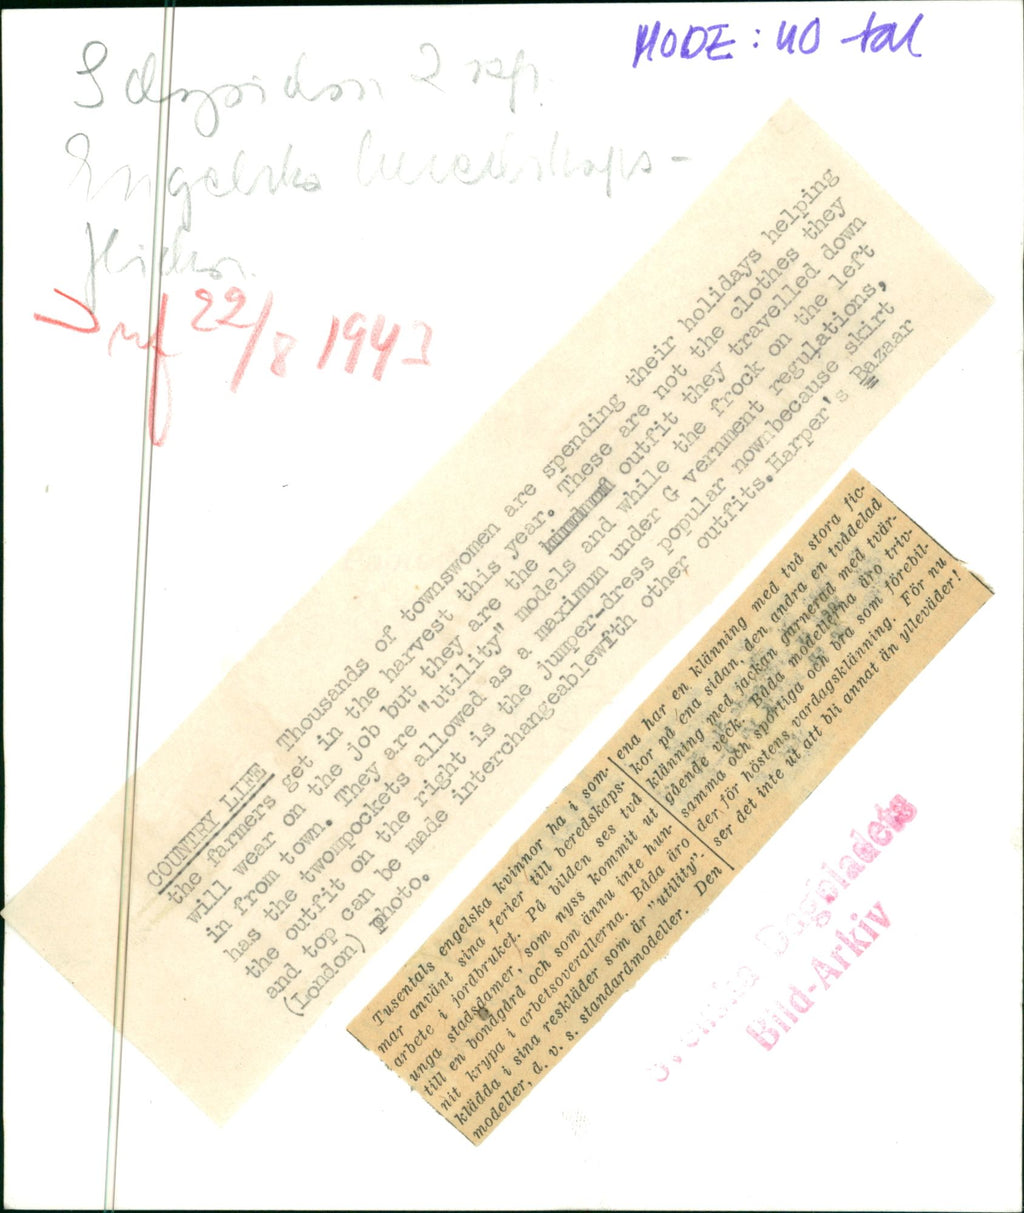 MODE: 40 tal
2 sp.
Engelska beredskaps-
flickor.
Inf 22/8 1943
COUNTRY LIFE Thousands of townswomen are spending their holidays helping
the farmers get in the harvest this year. These are not the clothes they
will wear on the job but they are the outfit they travelled down
in from town. They are "utility" models and while the frock on the left
has the two pockets allowed as a maximum under G vernment regulations,
the outfit on the right is the jumper-dress popular nownbecause skirt
and top can be made interchangeablewith other outfits. Harper's Bazaar
(London) photo.
Tusentals engelska kvinnor ha i som-
mar använt sina ferier till beredskaps-
arbete i jordbruket. På bilden ses två
unga stadsdamer, som nyss kommit ut
till en bondgård och som ännu inte hun-
nit krypa i arbetsoverallerna. Båda äro
klädda i sina reskläder som är "utility"-
modeller, d. v. s. standardmodeller. Den
ena har en klänning med två stora fic-
kor på ena sidan, den andra en tvådelad
klänning med jackan garnerad med tvär-
gående veck. Båda modellerna äro triv-
samma och sportiga och bra som förebil-
der för höstens vardagsklänning. För nu
ser det inte ut att bli annat än ylleväder!
Svenska Dagbladets
Bild-Arkiv